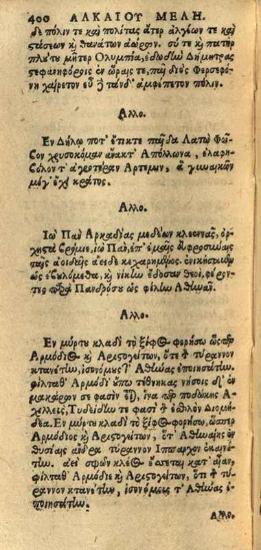 400 ΑΛΚΑΙΟΥ ΜΕΛΗ.
δε πόλιν τε καὶ πολίτας ἄτερ ἀλγέων τε καὶ
στάσεων καὶ θανάτων ἀώρων. σύ τε καὶ πατήρ
πλοῦτε μῆτερ Ὀλυμπία, ἀείδω Δήμητρα
στεφανηφόροις ἐν ὥραις τε, παῖ διὸς Φερσεφό-
νη χαίρετον εὖ τάνδ' ἀμφέπετον πόλιν.
Αλλο.
Εν Δήλῳ ποτ' ἔτικτε παῖδα Λατὼ Φοῖ-
βον χρυσοκόμαν ἄνακτ' Απόλλωνα, ἐλαφη-
βόλον τ' ἀγροτέραν Αρτεμιν, ἃ γυναικῶν
μέγ' ἔχει κράτος.
Αλλο.
Ιὼ Πὰν Αρκαδίας μεδέων κλεεννᾶς, ὀρ-
χηστὰ Βρομίαις
ὡς ἐβουλόμεθα, καὶ νίκην ἔδοσαν θεοὶ, φέρον-
τες παρὰ Πανδρόσου ὡς φίλην Αθηνᾶν
Αλλο.
Εν μύρτου κλαδὶ τὸ ξίφος φορήσω ὥσπερ
Αρμόδιος καὶ Αριστογείτων, ὅτε τὸν τύραννον
κτανέτην, ἰσονόμους τ' Αθήνας ἐποιησάτην.
φίλταθ' Αρμόδι' οὔπω τέθνηκας νήσοις δ' ἐν
μακάρων σε φασὶν εἶναι, ἵνα περ ποδώκης Α-
χιλλεὺς, Τυδείδην τε φασὶ τὸν ἐσθλὸν Διομή-
δεα. Εν μύρτου κλαδὶ τὸ ξίφος φορήσω, ὥσπερ
Αρμόδιος καὶ Αριστογείτων, ὅτ' Αθηναίης ἐν
θυσίαις ἄνδρα τύραννον Ιππαρχον ἐκαινέ-
την. ἀεὶ σφῶν κλέος ἔσσεται κατ' αἶαν,
φίλταθ' Αρμόδιος καὶ Αριστογείτων, ὅτι τὸν τύ-
ραννον κτανέτην, ἰσονόμους τ' Αθήνας ἐ-
ποιησάτην.